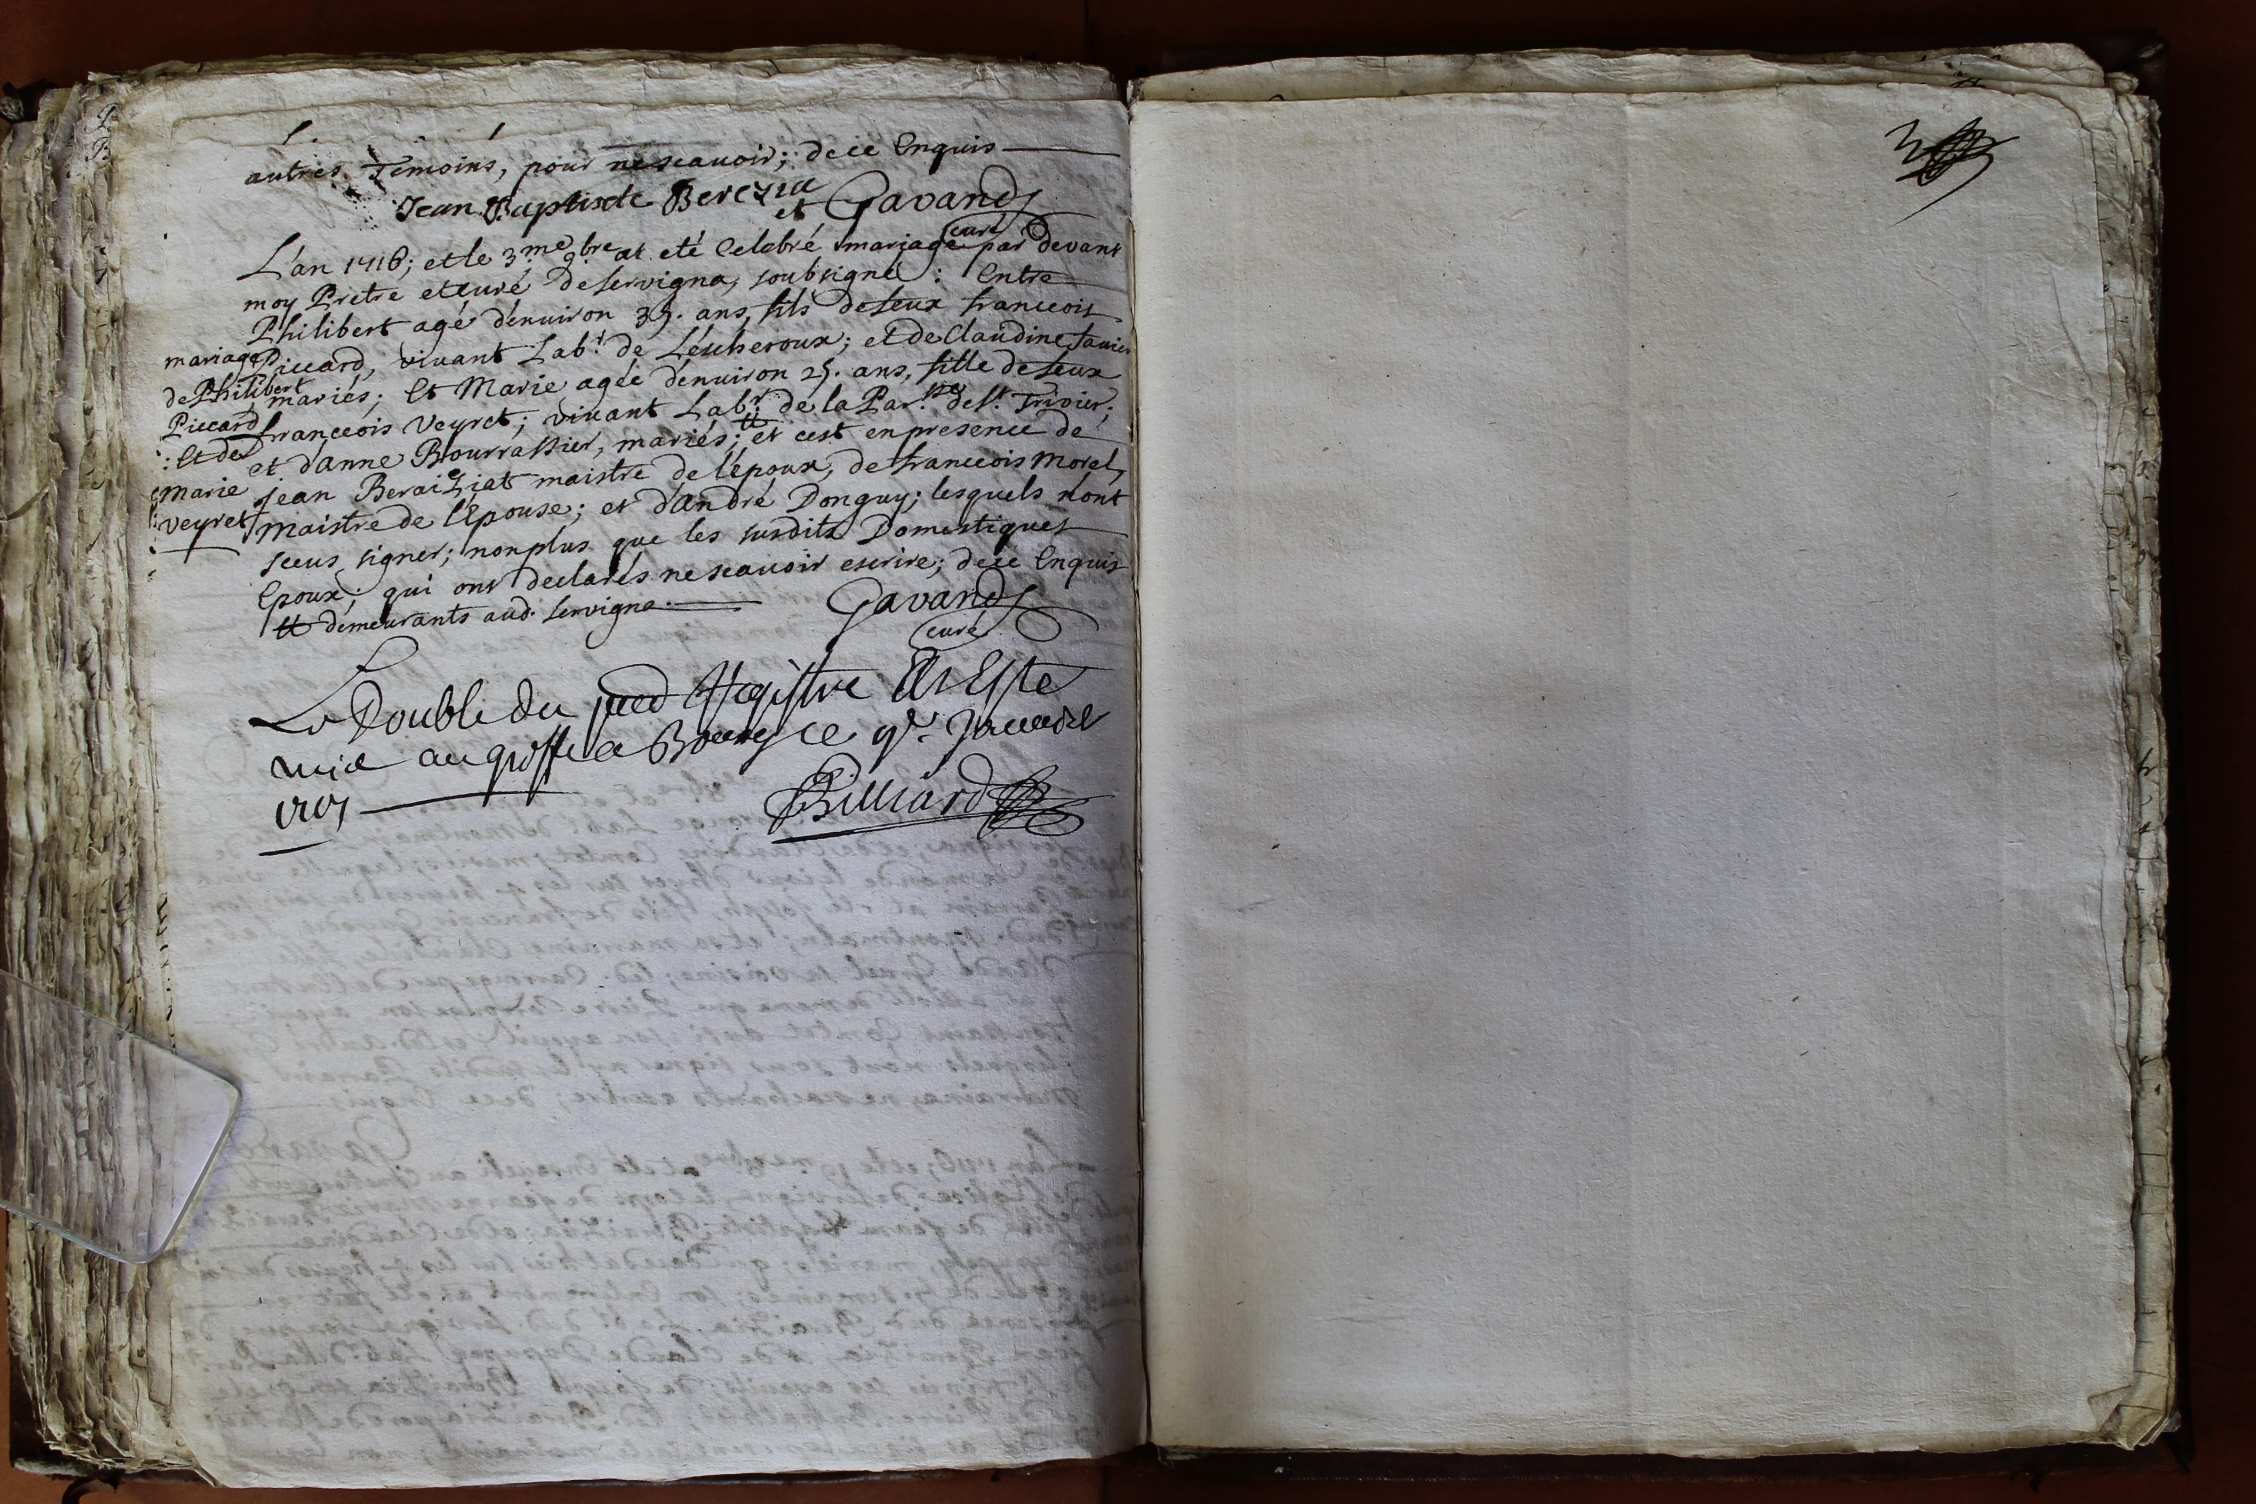 autres Temoins, pour nescauoir; dece Enquis
Jean Baptiste Berezia
et Gavand
curé
L'an 1716; et le 3.me 9.bre at eté Celebré mariage par devant
moy Pretre et curé de servigna, soubsigné : Entre
Philibert agé d'enuiron 35. ans, fils de feux franceois
Piccard, viuant Lab.r de Léscheroux; et de Claudine
mariés; Et Marie agée d'enuiron 25. ans, fille de feux
franceois Veyret; viuant Lab.r de la Par.sse de S.t Trivier;
et d'anne Bourrassier, mariés; et cest en presence de
Jean Beraiziat maistre de l'époux, de franceois Morel,
Maistre de l'Epouse; et d'André Donguy; lesquels n'ont
sceus signer; nonplus que les susdits Domestiques
Epoux; qui ont declarés ne scauoir escrire; dece Enquis
demeurants aud. servigna.
mariage
de Philibert
Piccard
: Et de
Marie
Veyret
Gavand
curé
Le Double du pnt Registre At Este
mis au greffe a Bourg ce
1717
Billiard